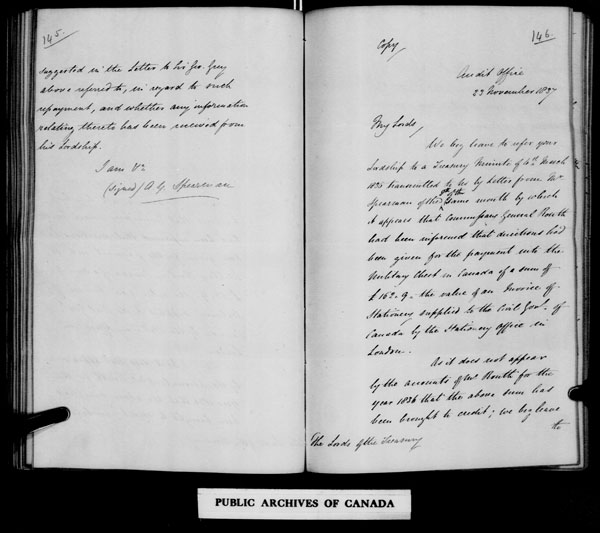 145.
suggested in the Letter to Sir Geo. Grey
above referred to, in regard to such
repayment, and whether any information
relating thereto has been received from
his Lordship.
I am &c
(signed) A. Y. Spearman
146.
Copy
Audit Office
23 November 1837
My Lords,
We beg leave to refer your
Lordship to a Treasury Minute of 4th March
1835 transmitted to us by Letter from Mr
Spearman of the same month by which
it appears that Commissary General Routh
had been informed that directions had
been given for the payment into the
Military Chest in Canada of a sum of
£162. 9. the value of an Invoice of
Stationery supplied to the Civil Govt. of
Canada by the Stationery Office in
London.
As it does not appear
by the accounts of Mr Routh for the
year 1836 that the above sum has
been brought to credit; we beg leave
to
The Lords of the Treasury
PUBLIC ARCHIVES OF CANADA